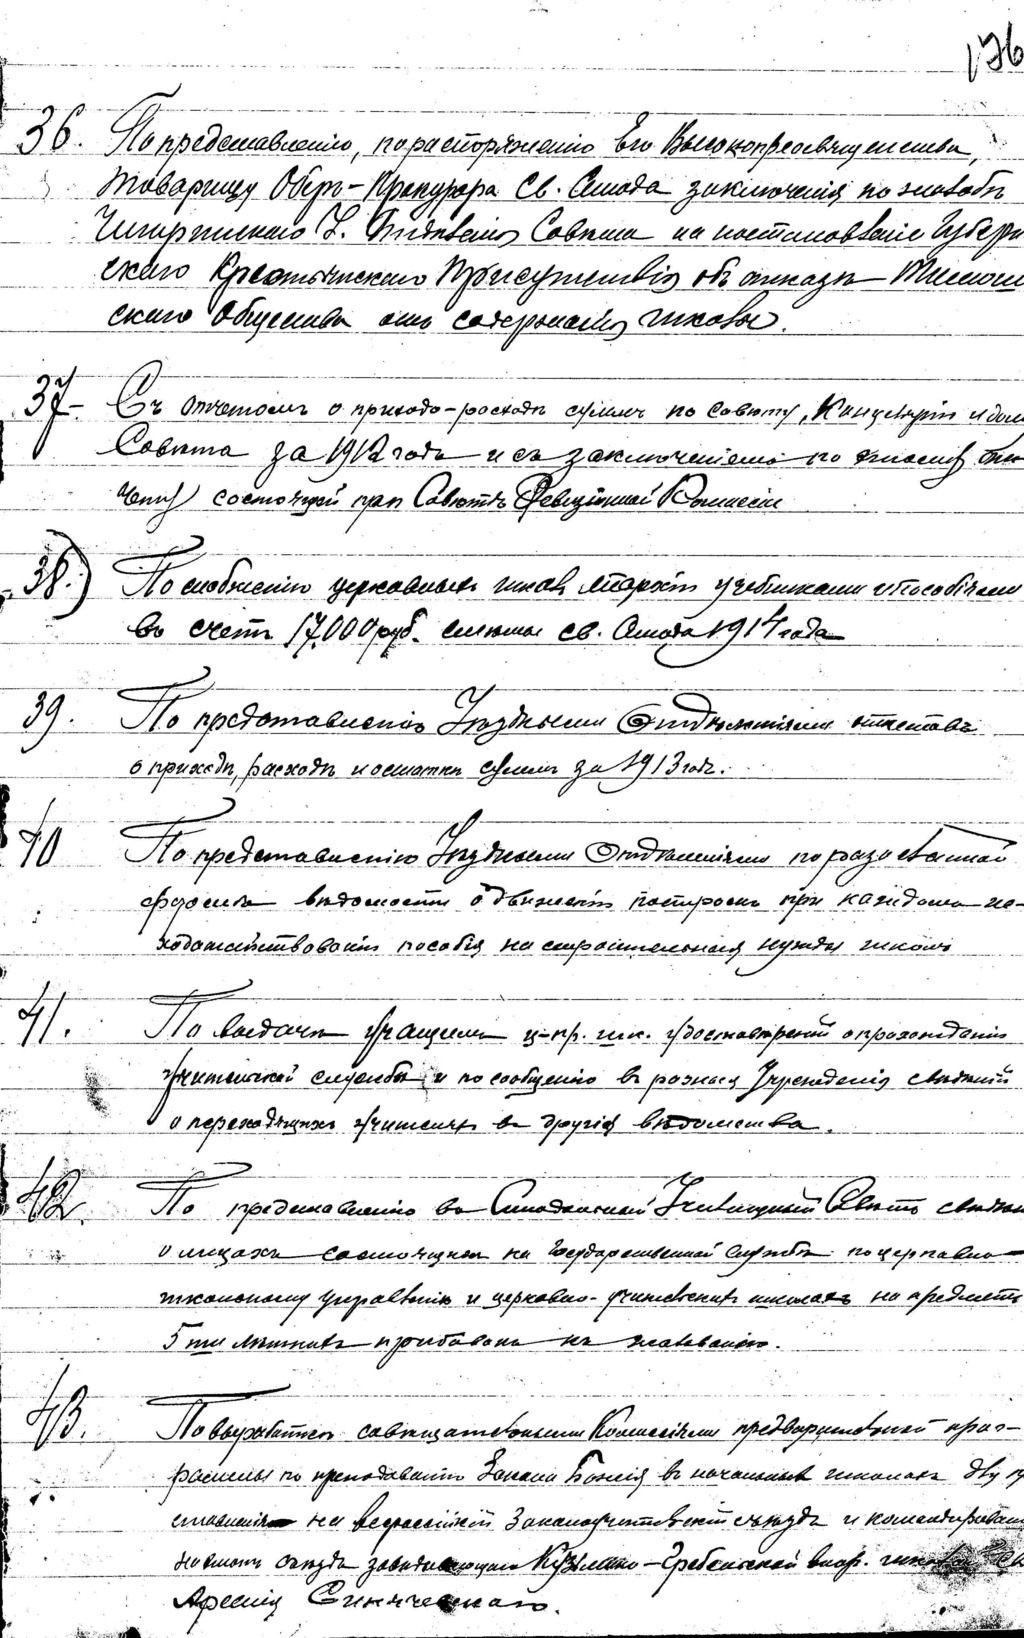 176
36. По представленію, по распоряженію Его Высокопреосвященства,
Товарищу Оберъ-Прокурора Св. Синода заключенія по жалобѣ
Чигиринскаго У. Отдѣленія Совѣта на постановленіе Губерн
скаго Крестьянскаго Присутствія объ отказѣ
скаго Общества отъ содержанія школы.
37. Съ отчетомъ о приходо-расходѣ суммъ по Совѣту, Канцеляріи и дому
Совѣта за 1912 годъ и съ заключеніемъ по этому от
чету состоящей при Совѣтѣ Ревизіонной Комиссіи
38.) По снабженію церковныхъ школъ епархіи учебниками и пособіями
въ счетъ 17,000 руб. смѣты св. Синода 1914 года
39. По представленію Уѣздными Отдѣленіями отчетовъ
о приходѣ, расходѣ и остаткѣ суммъ за 1913 годъ.
40 По представленію Уѣздными Отдѣленіями по разосланной
формѣ вѣдомости о движеніи построекъ при каждомъ
ходатайствованіи пособія на строительныя нужды школъ
41. По выдачѣ учащимъ ц-пр. шк. удостовѣреній о прохожденіи
учительской службы и по сообщенію въ разныя Учрежденія свѣдѣній
о переходящихъ учителяхъ въ другія вѣдомства.
42. По представленію въ Синодальный Училищный Совѣтъ свѣдѣн
о лицахъ состоящихъ на Государственной Службѣ по церковно-
школьному управленію и церковно-учительскихъ школахъ на предметъ
5ти лѣтнихъ прибавокъ къ жалованію.
43. По выработкѣ совѣщательными Комиссіями предварительной прог-
раммы по преподаванію Закона Божія въ начальныхъ школахъ для пред
ставленія на всероссійскій Законоучительскій съѣздъ и командированію
на этотъ съѣздъ завѣдывающаго Кузьмино-Гребельской школой св.
Арсенія